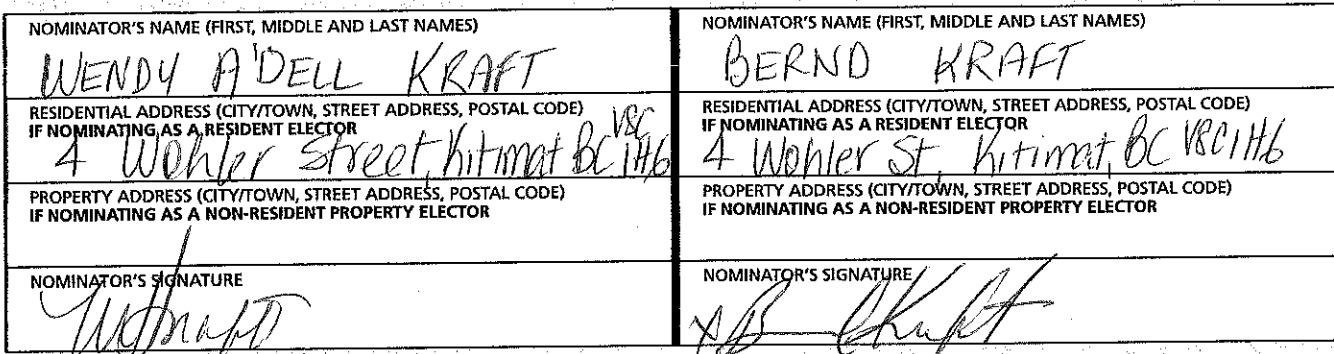 NOMINATOR'S NAME (FIRST, MIDDLE AND LAST NAMES)
WENDY A'DELL KRAFT
RESIDENTIAL ADDRESS (CITY/TOWN, STREET ADDRESS, POSTAL CODE)
IF NOMINATING AS A RESIDENT ELECTOR
4 Wohler Street, Kitimat BC V8C 1H6
PROPERTY ADDRESS (CITY/TOWN, STREET ADDRESS, POSTAL CODE)
IF NOMINATING AS A NON-RESIDENT PROPERTY ELECTOR
NOMINATOR'S SIGNATURE
NOMINATOR'S NAME (FIRST, MIDDLE AND LAST NAMES)
BERND KRAFT
RESIDENTIAL ADDRESS (CITY/TOWN, STREET ADDRESS, POSTAL CODE)
IF NOMINATING AS A RESIDENT ELECTOR
4 Wohler St, Kitimat, BC V8C1H6
PROPERTY ADDRESS (CITY/TOWN, STREET ADDRESS, POSTAL CODE)
IF NOMINATING AS A NON-RESIDENT PROPERTY ELECTOR
NOMINATOR'S SIGNATURE